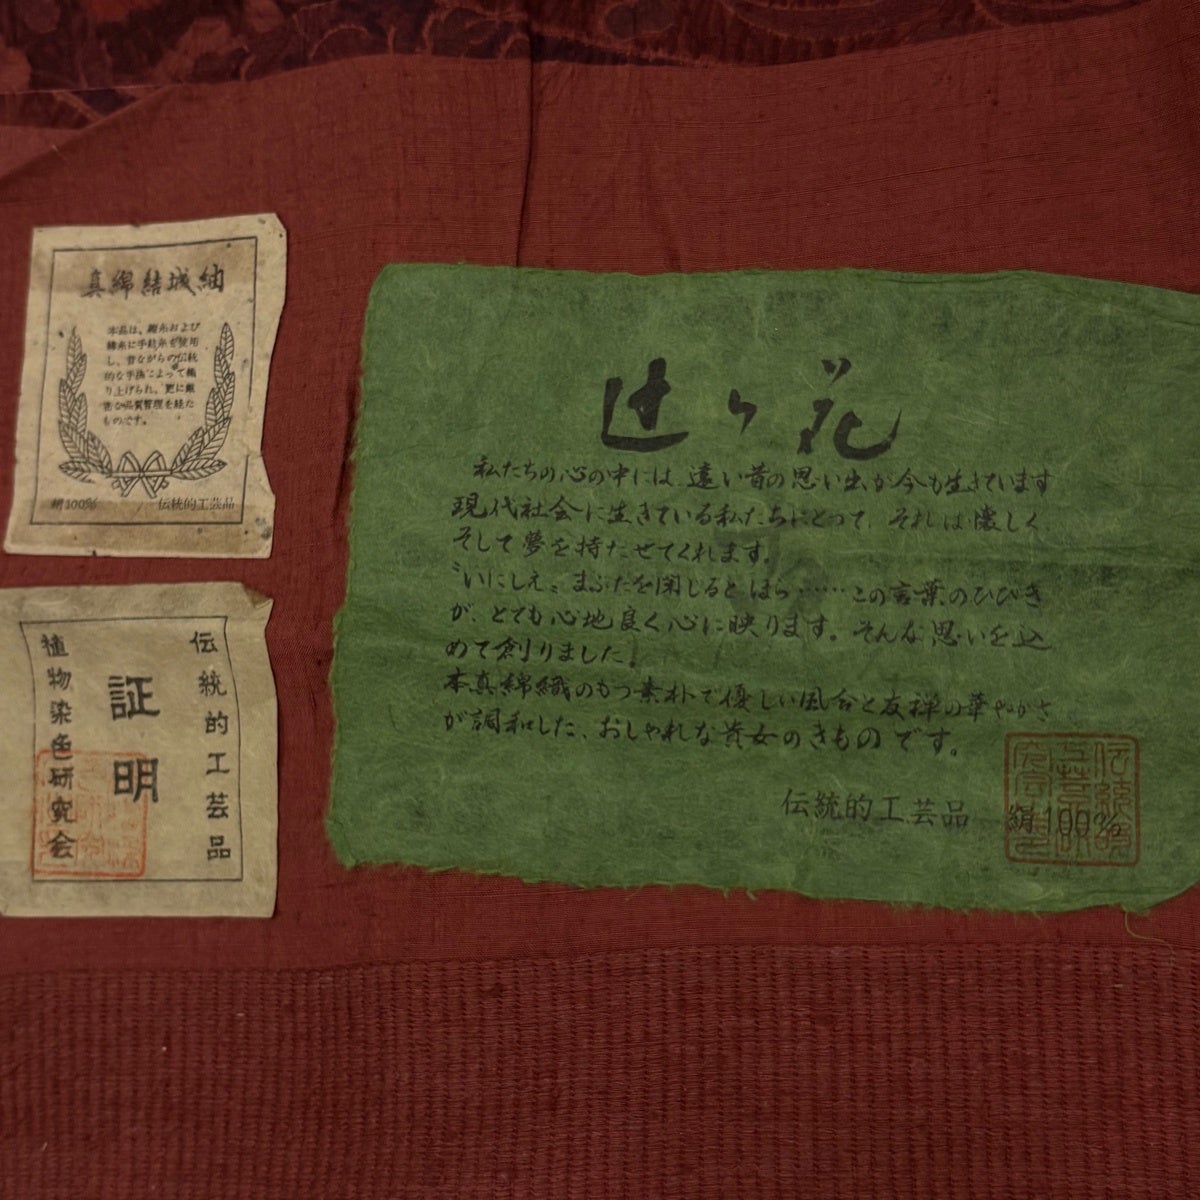 真綿結城紬
本品は、経糸および
緯糸に手紡糸を使用
し、昔ながらの伝統
的な手法によって織
り上げられ、更に厳
密な品質管理を経た
ものです。
絹100% 伝統的工芸品
伝統的工芸品
証明
植物染色研究会
辻ヶ花
私たちの心の中には、遠い昔の思い出が今も生きています
現代社会に生きている私たちにとって、それは懐しく、
そして夢を持たせてくれます。
〝いにしえ〟まぶたを閉じると ほら……この言葉のひびき
が、とても心地良く心に映ります。そんな思いを込
めて創りました。
本真綿織のもつ素朴で優しい風合と友禅の華やかさ
が調和した、おしゃれな貴女のきものです。
伝統的工芸品 絹100%